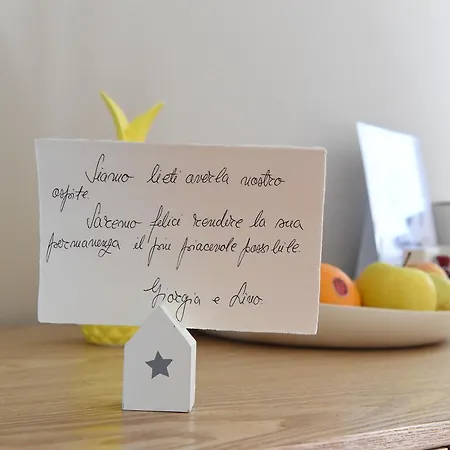 Siamo lieti averla nostro
ospite.
Saremo felici rendere la sua
permanenza il piu piacevole possibile.
Giorgia e Livo